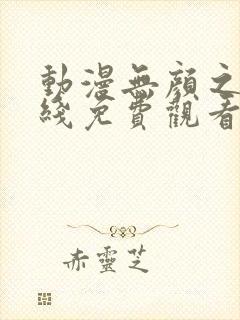 動漫無顏之
綫免費觀看
赤靈芝